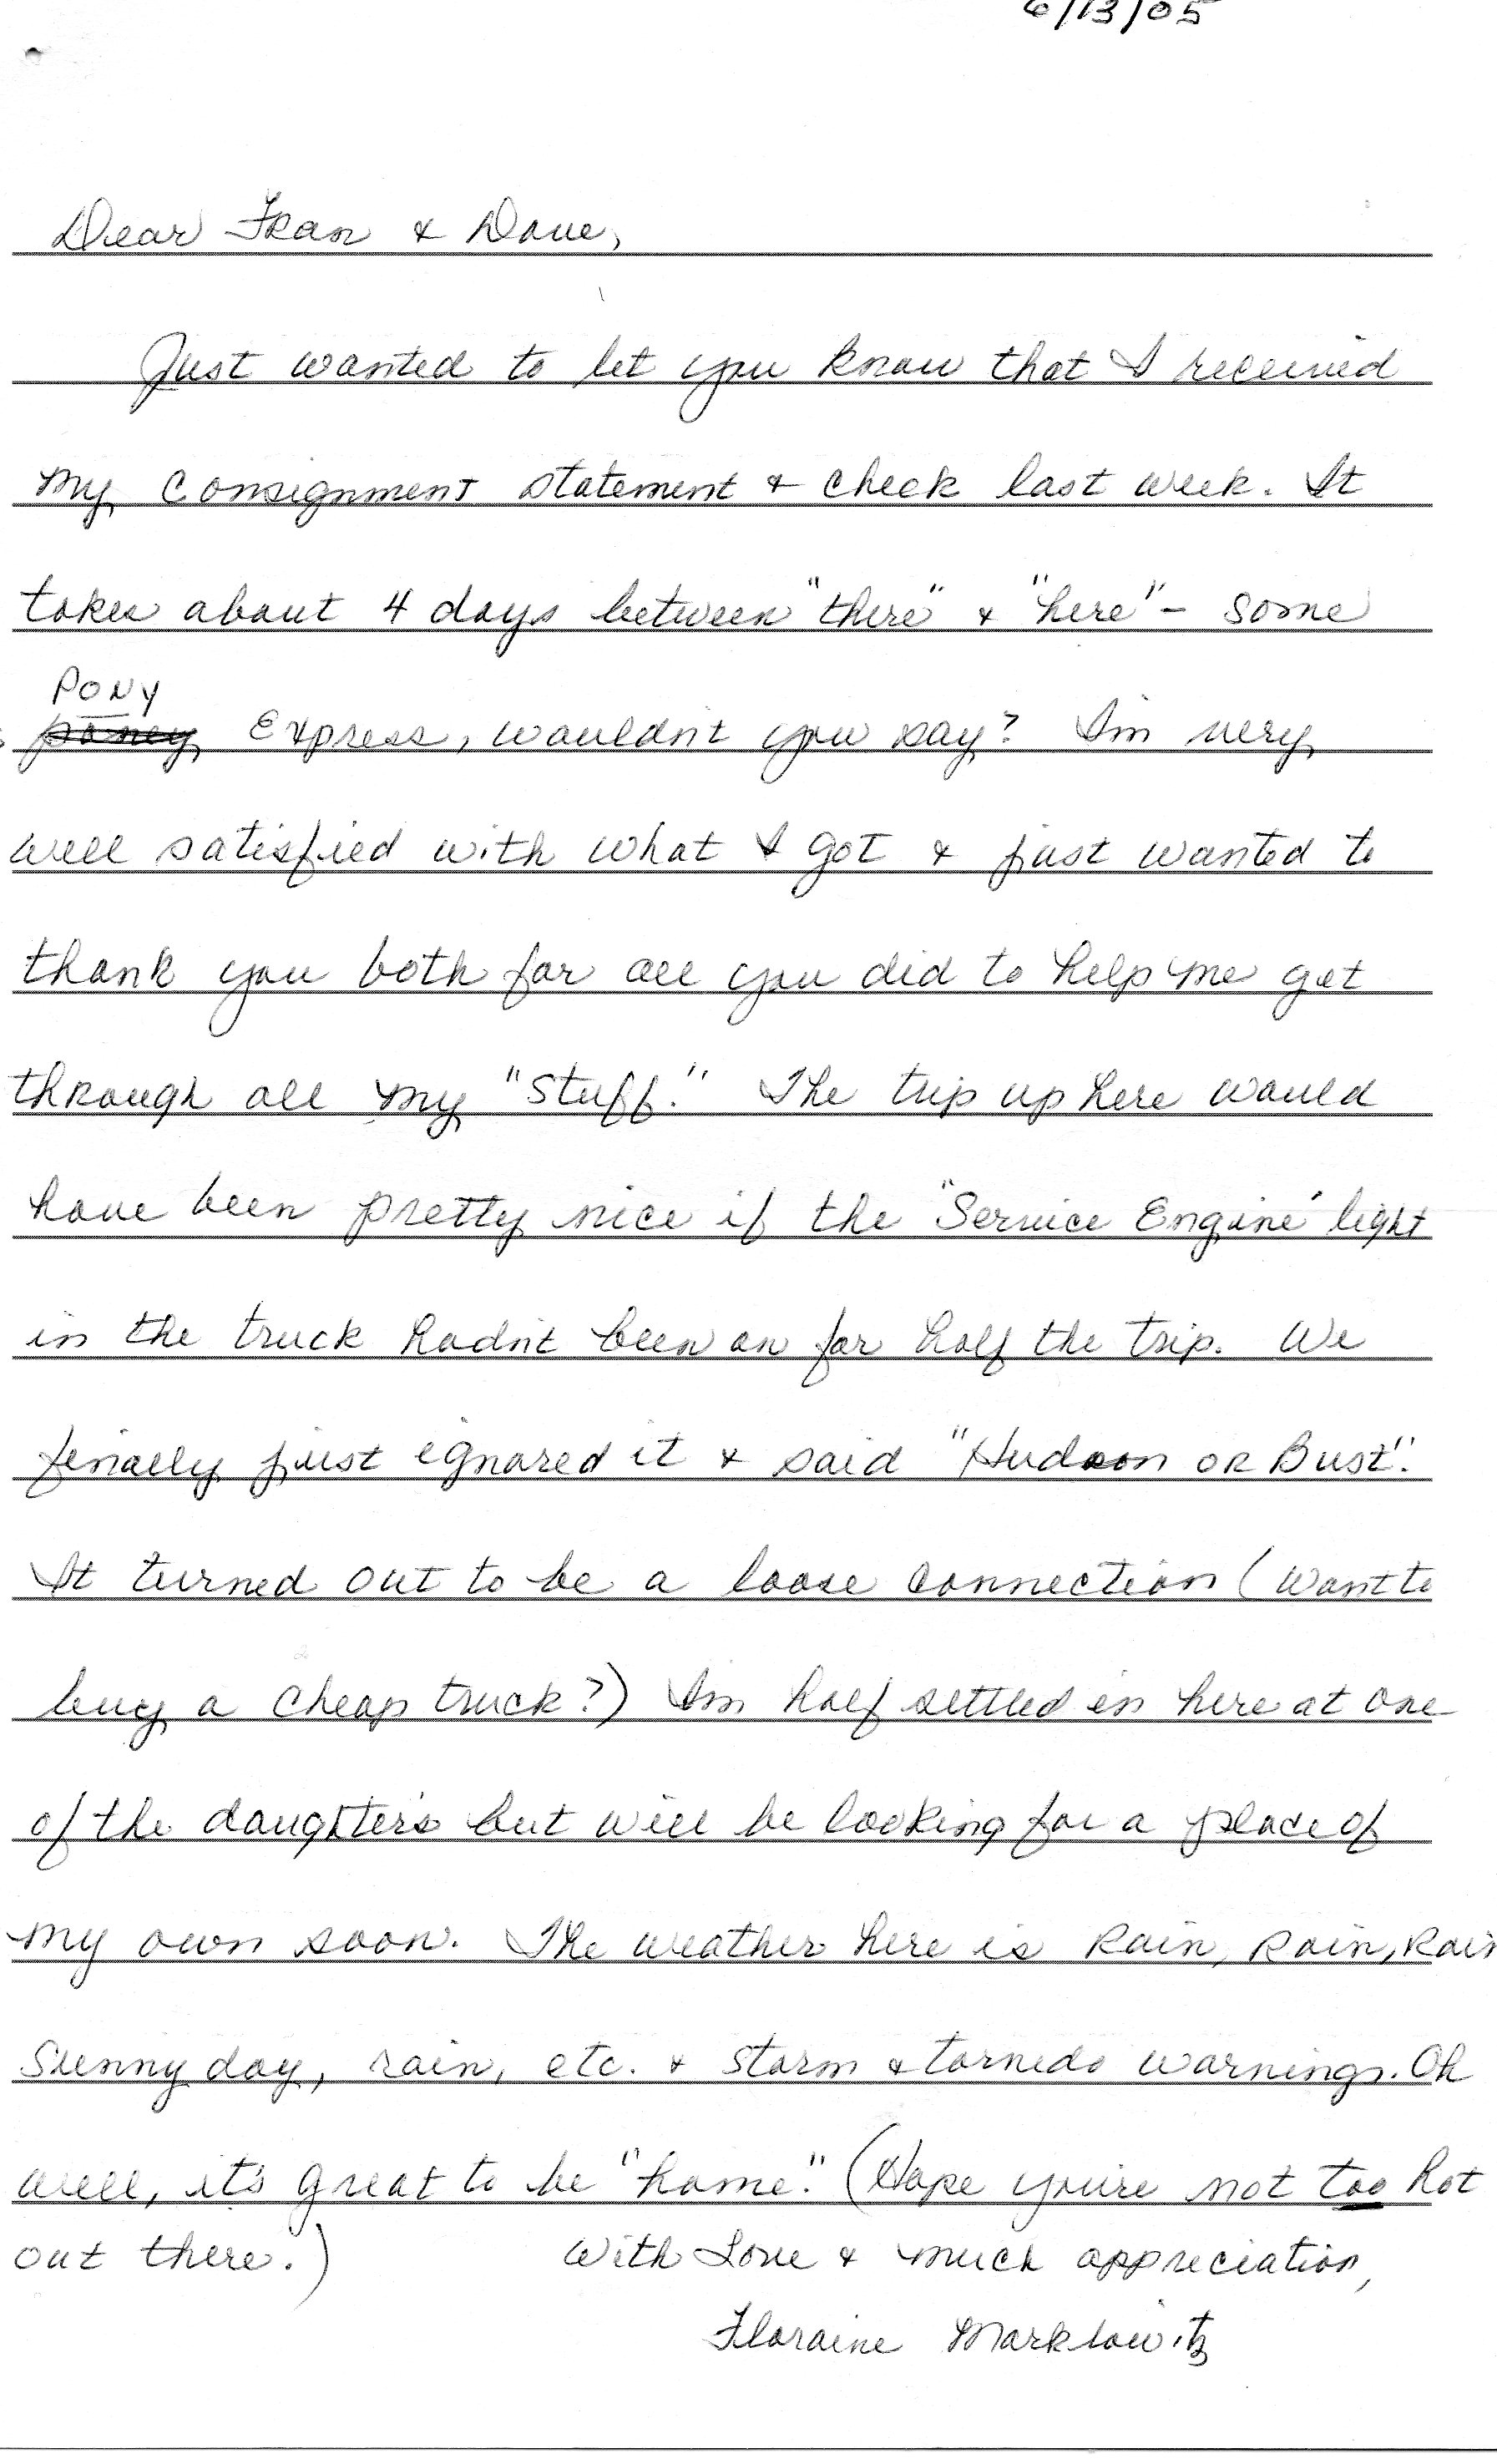 6/13/05
Dear Fran & Dave,
Just wanted to let you know that I received
my consignment statement & check last week. It
takes about 4 days between "there" & "here" - some
PONY
poney Express, wouldn't you say? I'm very
well satisfied with what I got & just wanted to
thank you both for all you did to help me get
through all my "stuff." The trip up here would
have been pretty nice if the "Service Engine" light
in the truck hadn't been on for half the trip. We
finally just ignored it & said "Hudson or Bust".
It turned out to be a loose connection (want to
buy a cheap truck?) I'm half settled in here at one
of the daughter's but will be looking for a place of
my own soon. The weather here is rain, rain, rain
sunny day, rain, etc. & storm & tornedo warnings. Oh
well, it's great to be "home." (Hope you're not too hot
out there.) With Love & much appreciation,
Floraine Marklowitz